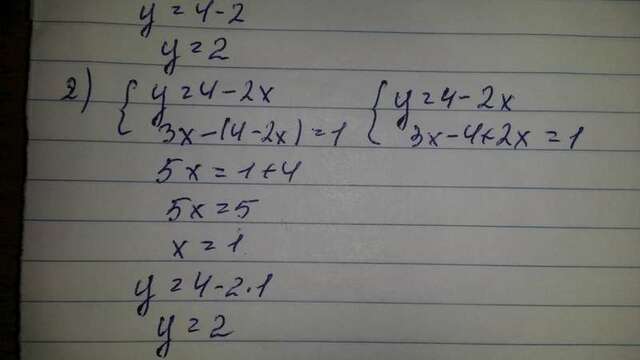 y = 4 - 2
y = 2
2) { y = 4 - 2x { y = 4 - 2x
3x - (4 - 2x) = 1 3x - 4 + 2x = 1
5x = 1 + 4
5x = 5
x = 1
y = 4 - 2 · 1
y = 2